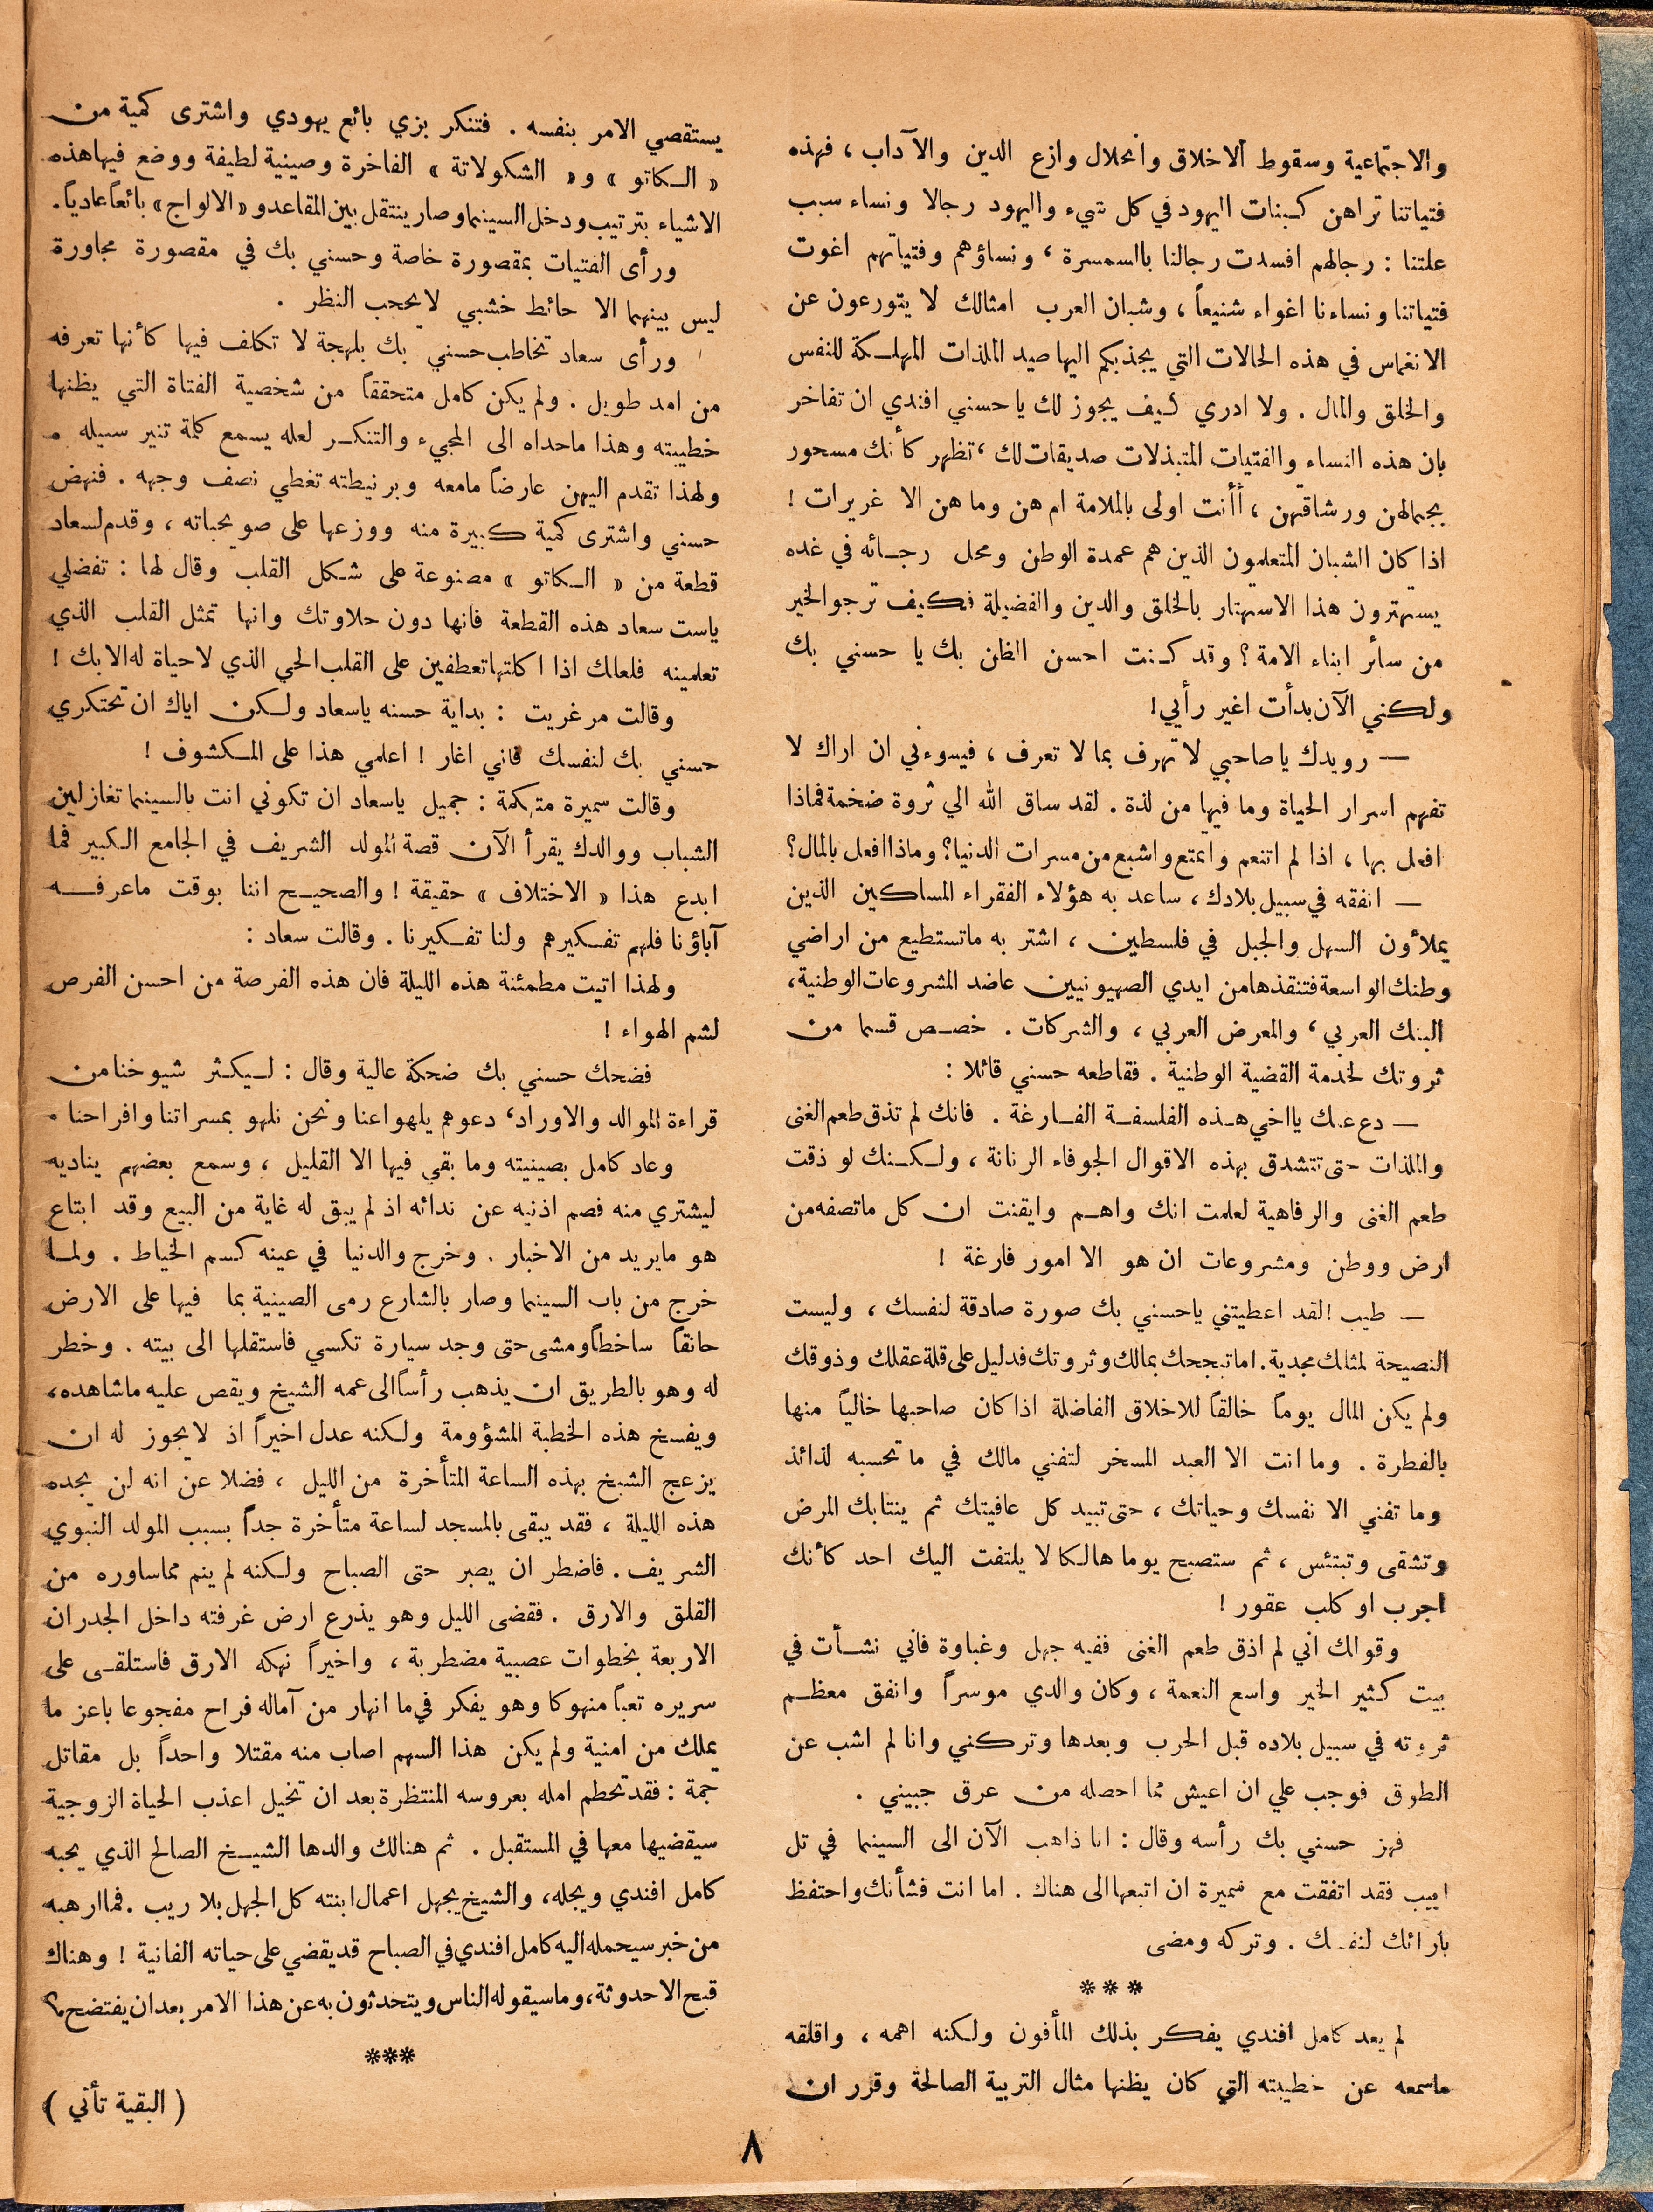 والاجتماعية وسقوط الاخلاق وانحلال وازع الدين والآداب ، فهذه
فتياتنا تراهن كبنات اليهود في كل شيء واليهود رجالا ونساء سبب
علتنا : رجالهم افسدت رجالنا بالسمسرة ، ونساؤهم وفتياتهم اغوت
فتياتنا ونساءنا اغواء شنيعاً ، وشبان العرب امثالك لا يتورعون عن
الانغماس في هذه الحالات التي يجذبكم اليها صيد الملذات المهلكة للنفس
والخلق والمال . ولا ادري كيف يجوز لك يا حسني افندي ان تفاخر
بان هذه النساء والفتيات المتبذلات صديقات لك ، تظهر كأنك مسحور
بجمالهن ورشاقتهن ، أأنت اولى بالملامة ام هن وما هن الا غريرات !
اذا كان الشبان المتعلمون الذين هم عمدة الوطن ومحل رجائه في غده
يستهترون هذا الاستهتار بالخلق والدين والفضيلة فكيف نرجو الخير
من سائر ابناء الامة ؟ وقد كنت احسن الظن بك يا حسني بك
ولكني الآن بدأت اغير رأيي !
— رويدك يا صاحبي لا تهرف بما لا تعرف ، فيسوءني ان اراك لا
تفهم اسرار الحياة وما فيها من لذة . لقد ساق الله الي ثروة ضخمة فماذا
افعل بها ، اذا لم اتنعم واتمتع واشبع من مسرات الدنيا ؟ وماذا افعل بالمال ؟
— انفقه في سبيل بلادك ، ساعد به هؤلاء الفقراء المساكين الذين
يملأون السهل والجبل في فلسطين ، اشتر به ماتستطيع من اراضي
وطنك الواسعة فتنقذها من ايدي الصهيونيين عاضد المشروعات الوطنية ،
البنك العربي ، والمعرض العربي ، والشركات . خصص قسما من
ثروتك لخدمة القضية الوطنية . فقاطعه حسني قائلا :
— دع عنك يااخي هذه الفلسفة الفارغة . فانك لم تذق طعم الغنى
والملذات حتى تتشدق بهذه الاقوال الجوفاء الرنانة ، ولكنك لو ذقت
طعم الغنى والرفاهية لعلمت انك واهم وايقنت ان كل ماتصفه من
ارض ووطن ومشروعات ان هو الا امور فارغة !
— طيب ! لقد اعطيتني ياحسني بك صورة صادقة لنفسك ، وليست
النصيحة لمثالك مجدية . اما تبجحك بمالك وثروتك فدليل على قلة عقلك وذوقك
ولم يكن المال يوماً خالقاً للاخلاق الفاضلة اذا كان صاحبها خالياً منها
بالفطرة . وما انت الا العبد المسخر لتفني مالك في ما تحسبه لذائذ
وما تفني الا نفسك وحياتك ، حتى تبيد كل عافيتك ثم ينتابك المرض
وتشقى وتبتئس ، ثم ستصبح يوما هالكا لا يلتفت اليك احد كأنك
اجرب او كلب عقور !
وقولك اني لم اذق طعم الغنى ففيه جهل وغباوة فاني نشأت في
بيت كثير الخير واسع النعمة ، وكان والدي موسراً وانفق معظم
ثروته في سبيل بلاده قبل الحرب وبعدها وتركني وانا لم اشب عن
الطوق فوجب علي ان اعيش مما احصله من عرق جبيني .
فهز حسني بك رأسه وقال : انا ذاهب الآن الى السينما في تل
ابيب فقد اتفقت مع سميرة ان اتبعها الى هناك . اما انت فشأنك واحتفظ
بآرائك لنفسك . وتركه ومضى
***
لم يعد كامل افندي يفكر بذلك المأفون ولكنه اهمه ، واقلقه
ماسمعه عن خطيبته التي كان يظنها مثال التربية الصالحة وقرر ان
يستقصي الامر بنفسه . فتنكر بزي بائع يهودي واشترى كمية من
« الكاتو » و« الشكولاتة » الفاخرة وصينية لطيفة ووضع فيها هذه
الاشياء بترتيب ودخل السينما وصار ينتقل بين المقاعد و«الالواج» بائعاً عادياً .
ورأى الفتيات بمقصورة خاصة وحسني بك في مقصورة مجاورة
ليس بينهما الا حائط خشبي لا يحجب النظر .
ورأى سعاد تخاطب حسني بك بلهجة لا تكلف فيها كأنها تعرفه
من امد طويل . ولم يكن كامل متحققاً من شخصية الفتاة التي يظنها
خطيبته وهذا ماحداه الى المجيء والتنكر لعله يسمع كلمة تنير سبيله .
ولهذا تقدم اليهن عارضاً مامعه وبرنيطته تغطي نصف وجهه . فنهض
حسني واشترى كمية كبيرة منه ووزعها على صويحباته ، وقدم لسعاد
قطعة من « الكاتو » مصنوعة على شكل القلب وقال لها : تفضلي
ياست سعاد هذه القطعة فانها دون حلاوتك وانها تمثل القلب الذي
تعلمينه فلعلك اذا اكلتها تعطفين على القلب الحي الذي لاحياة له الا بك !
وقالت مرغريت : بداية حسنه ياسعاد ولكن اياك ان تحتكري
حسني بك لنفسك فاني اغار ! اعلمي هذا على المكشوف !
وقالت سميرة متهكمة : جميل ياسعاد ان تكوني انت بالسينما تغازلين
الشباب ووالدك يقرأ الآن قصة المولد الشريف في الجامع الكبير فما
ابدع هذا « الاختلاف » حقيقة ! والصحيح اننا بوقت ماعرفه
آباؤنا فلهم تفكيرهم ولنا تفكيرنا . وقالت سعاد :
ولهذا اتيت مطمئنة هذه الليلة فان هذه الفرصة من احسن الفرص
لشم الهواء !
فضحك حسني بك ضحكة عالية وقال : ليكثر شيوخنا من
قراءة الموالد والاوراد ، دعوهم يلهوا عنا ونحن نلهو بمسراتنا وافراحنا .
وعاد كامل بصينيته وما بقي فيها الا القليل ، وسمع بعضهم يناديه
ليشتري منه فصم اذنيه عن ندائه اذ لم يبق له غاية من البيع وقد ابتاع
هو مايريد من الاخبار . وخرج والدنيا في عينه كسم الخياط . ولما
خرج من باب السينما وصار بالشارع رمى الصينية بما فيها على الارض
حانقاً ساخطاً ومشى حتى وجد سيارة تكسي فاستقلها الى بيته . وخطر
له وهو بالطريق ان يذهب رأساً الى عمه الشيخ ويقص عليه ماشاهده ،
ويفسخ هذه الخطبة المشؤومة ولكنه عدل اخيراً اذ لايجوز له ان
يزعج الشيخ بهذه الساعة المتأخرة من الليل ، فضلا عن انه لن يجده
هذه الليلة ، فقد يبقى بالمسجد لساعة متأخرة جداً بسبب المولد النبوي
الشريف . فاضطر ان يصبر حتى الصباح ولكنه لم ينم مماساوره من
القلق والارق . فقضى الليل وهو يذرع ارض غرفته داخل الجدران
الاربعة بخطوات عصبية مضطربة ، واخيراً نهكه الارق فاستلقى على
سريره تعباً منهوكا وهو يفكر في ما انهار من آماله فراح مفجوعا باعز ما
يملك من امنية ولم يكن هذا السهم اصاب منه مقتلا واحداً بل مقاتل
جمة : فقد تحطم امله بعروسه المنتظرة بعد ان تخيل اعذب الحياة الزوجية
سيقضيها معها في المستقبل . ثم هنالك والدها الشيخ الصالح الذي يحبه
كامل افندي ويجله ، والشيخ يجهل اعمال ابنته كل الجهل بلا ريب . فما ارهبه
من خبر سيحمله اليه كامل افندي في الصباح قد يقضي على حياته الفانية ! وهناك
قبح الاحدوثة ، وماسيقوله الناس ويتحدثون به عن هذا الامر بعد ان يفتضح ؟
***
( البقية تأتي )
٨